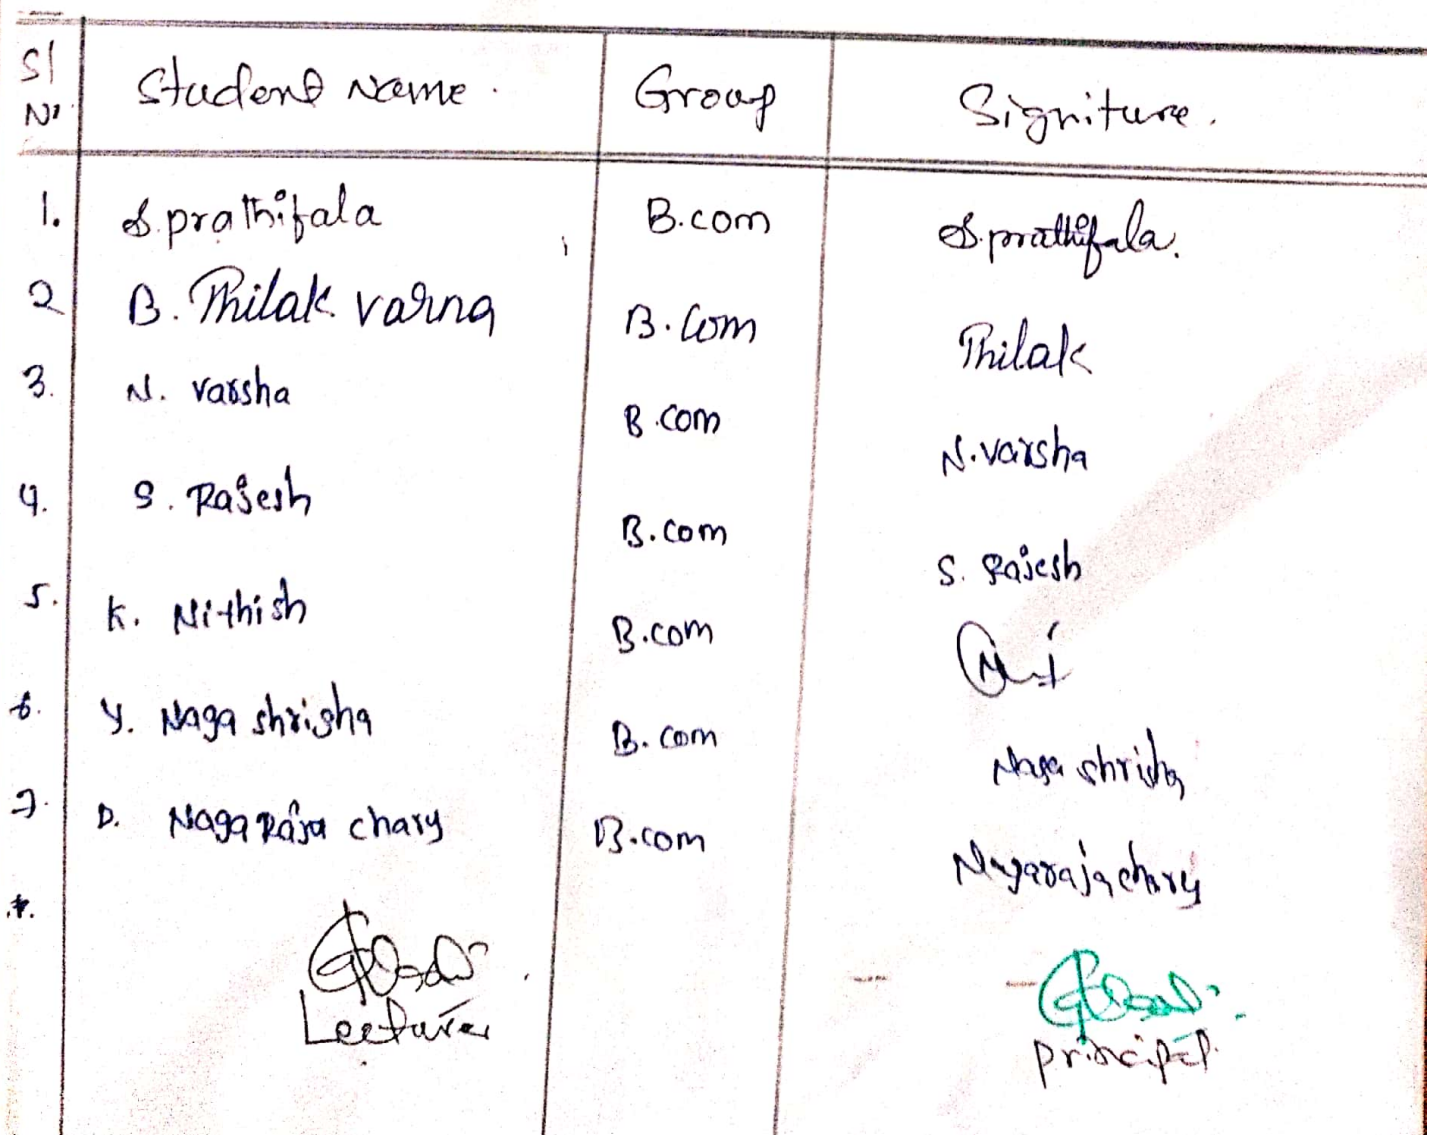 Sl No Student Name. Group Signiture.
1. S. prathifala B.com S. prathifala.
2 B. Thilak varna B.Com Thilak
3. N. varsha B.com N. varsha
4. S. Rajesh B.com S. Rajesh
5. K. Nithish B.com
6. Y. Naga shrisha B.com Naga shrisha
7. D. Naga Raja chary B.com Nagarajachary
Lecturer principal.